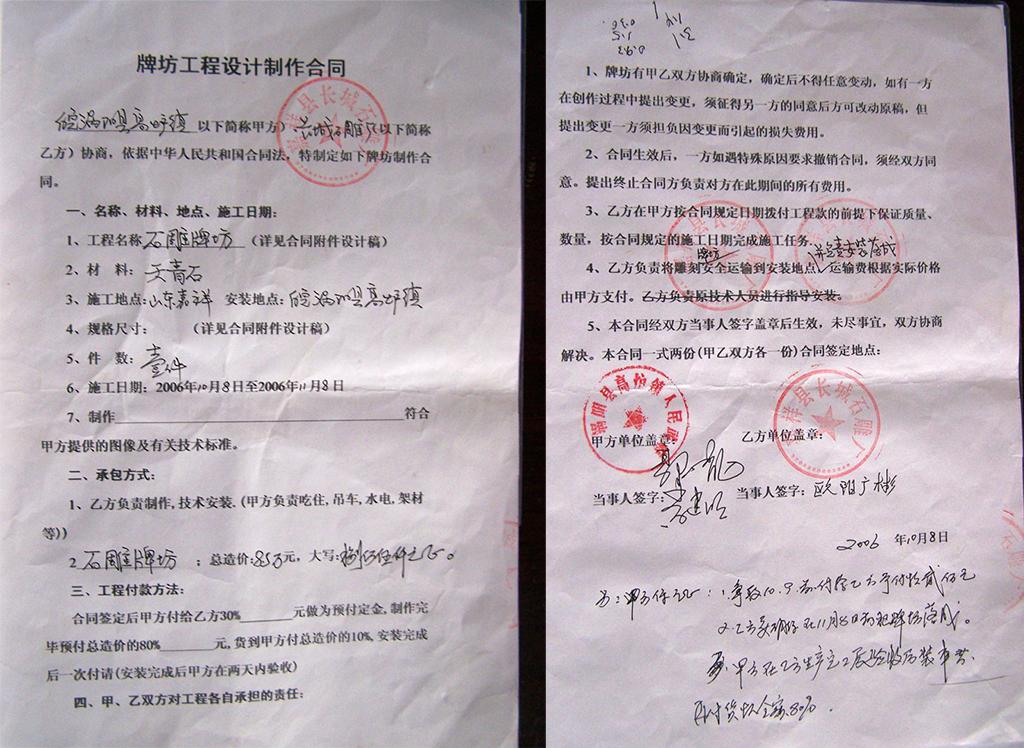 牌坊工程设计制作合同
皖涡阳县高炉镇 以下简称甲方) 长城石雕厂(以下简称
乙方）协商，依据中华人民共和国合同法，特制定如下牌坊制作合
同。
一、名称、材料、地点、施工日期：
1、工程名称 石雕牌坊 （详见合同附件设计稿）
2、材 料：天青石
3、施工地点：山东嘉祥 安装地点：皖涡阳县高炉镇
4、规格尺寸： （详见合同附件设计稿）
5、件 数：壹件
6、施工日期：2006年10月8日至2006年11月8日
7、制作 符合
甲方提供的图像及有关技术标准。
二、承包方式：
1、乙方负责制作，技术安装.（甲方负责吃住，吊车，水电，架材
等))
2 石雕牌坊 ；总造价:8.5万元，大写:捌万伍仟元正。
三、工程付款方法：
合同签定后甲方付给乙方30% 元做为预付定金,制作完
毕预付总造价的80% 元,货到甲方付总造价的10%,安装完成
后一次付请(安装完成后甲方在两天内验收)
四、甲、乙双方对工程各自承担的责任：
1、牌坊有甲乙双方协商确定，确定后不得任意变动，如有一方
在创作过程中提出变更，须征得另一方的同意后方可改动原稿，但
提出变更一方须担负因变更而引起的损失费用。
2、合同生效后，一方如遇特殊原因要求撤销合同，须经双方同
意。提出终止合同方负责对方在此期间的所有费用。
3、乙方在甲方按合同规定日期拨付工程款的前提下保证质量、
数量，按合同规定的施工日期完成施工任务。
牌坊 并负责安装落成
4、乙方负责将雕刻安全运输到安装地点，运输费根据实际价格
由甲方支付。乙方负责原技术人员进行指导安装。
5、本合同经双方当事人签字盖章后生效，未尽事宜，双方协商
解决。本合同一式两份(甲乙双方各一份)合同签定地点：
涡阳县高炉镇人民政府
嘉祥县长城石雕厂
甲方单位盖章： 乙方单位盖章：
当事人签字： 当事人签字：欧阳广彬
2006 年10月8日
10.9 前付给乙方予付款贰万元
2.乙方要确保在11月8日前把牌坊落成。
甲方在乙方生产完工后验收后装车并
付货款全额80%.